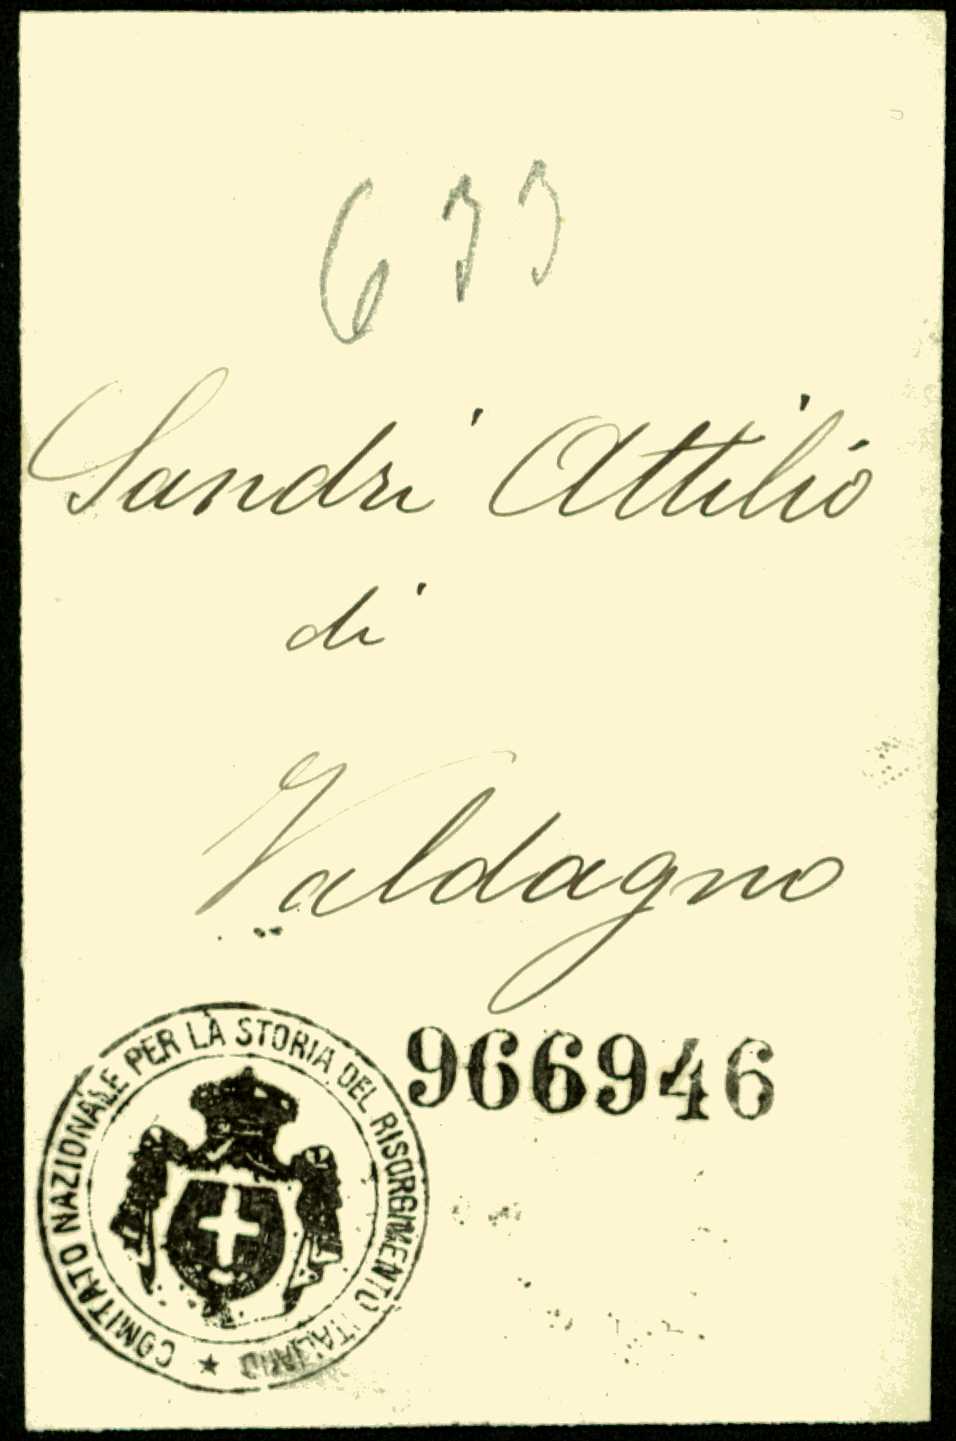 633
Sandri Attilio
di
Valdagno
966946
COMITATO NAZIONALE PER LA STORIA DEL RISORGIMENTO ITALIANO